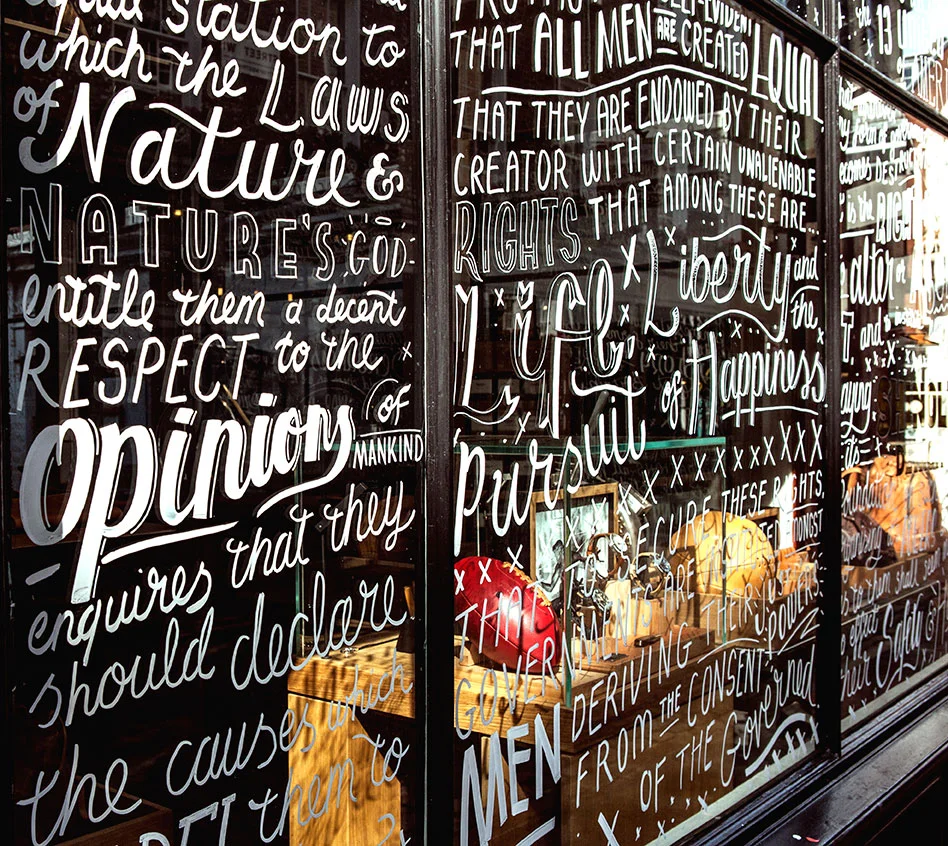 equal station to
which the Laws
of Nature &
NATURE'S GOD
entitle them a decent
RESPECT to the
Opinions of MANKIND
enquires that they
should declare
the causes which
them to
SELF-EVIDENT
THAT ALL MEN ARE CREATED EQUAL
THAT THEY ARE ENDOWED BY THEIR
CREATOR WITH CERTAIN UNALIENABLE
RIGHTS THAT AMONG THESE ARE...
Life, Liberty and the
Pursuit of Happiness
THAT TO SECURE THESE RIGHTS,
GOVERNMENTS ARE AMONGST
MEN DERIVING THEIR JUST POWERS
FROM THE CONSENT
OF THE Governed
13
is the RIGHT
alter or
and
shall seem
effect
their Safety